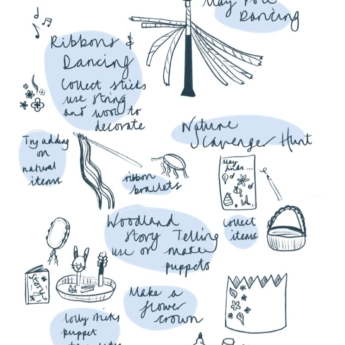 May Pole
Dancing
Ribbons &
Dancing
Collect sticks
use string
and wool to
decorate
Nature
Scavenger Hunt
Try adding
on
natural
items
ribbon
bracelets
May
Collect
items
Woodland
Story Telling
use or make
puppets
Make a
flower
crown
Lolly sticks
puppet